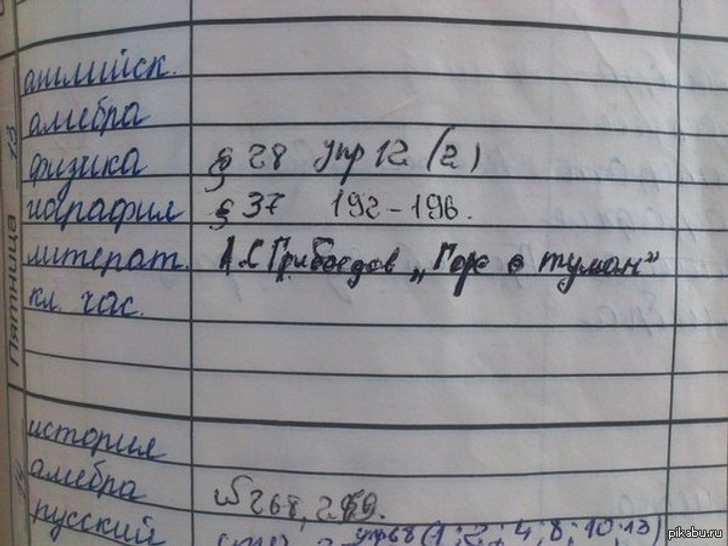 английск.
алгебра
физика § 28 упр 12 (2)
география § 37 192-196.
литерат. А.С Грибоедов „Горе о туман"
кл. час.
Пятница 13
история
алгебра № 268, 269.
русский упр68 (1; 2; 4; 8; 10; 13)
14
pikabu.ru